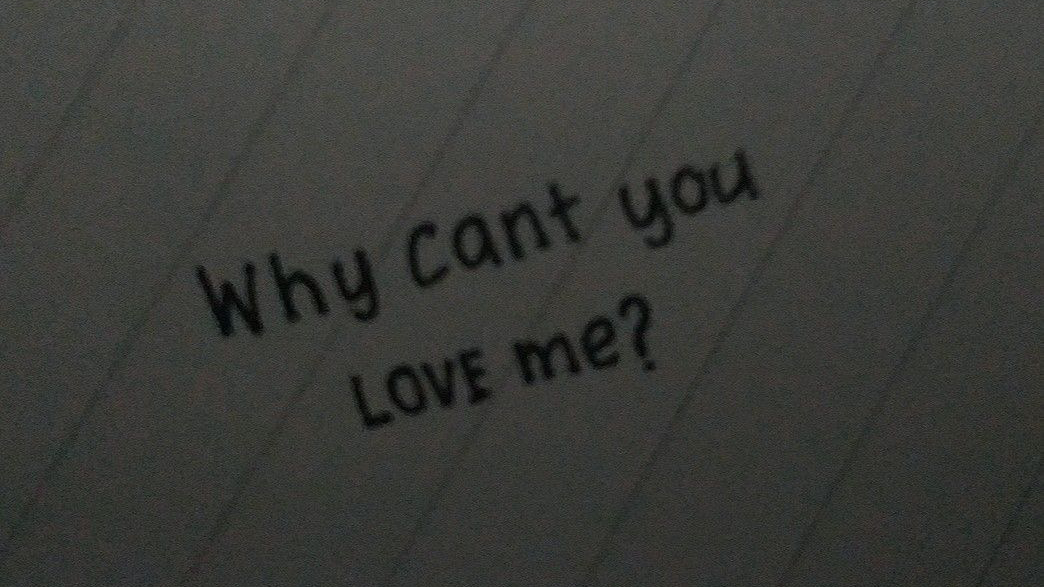 Why Cant you
LOVE me?